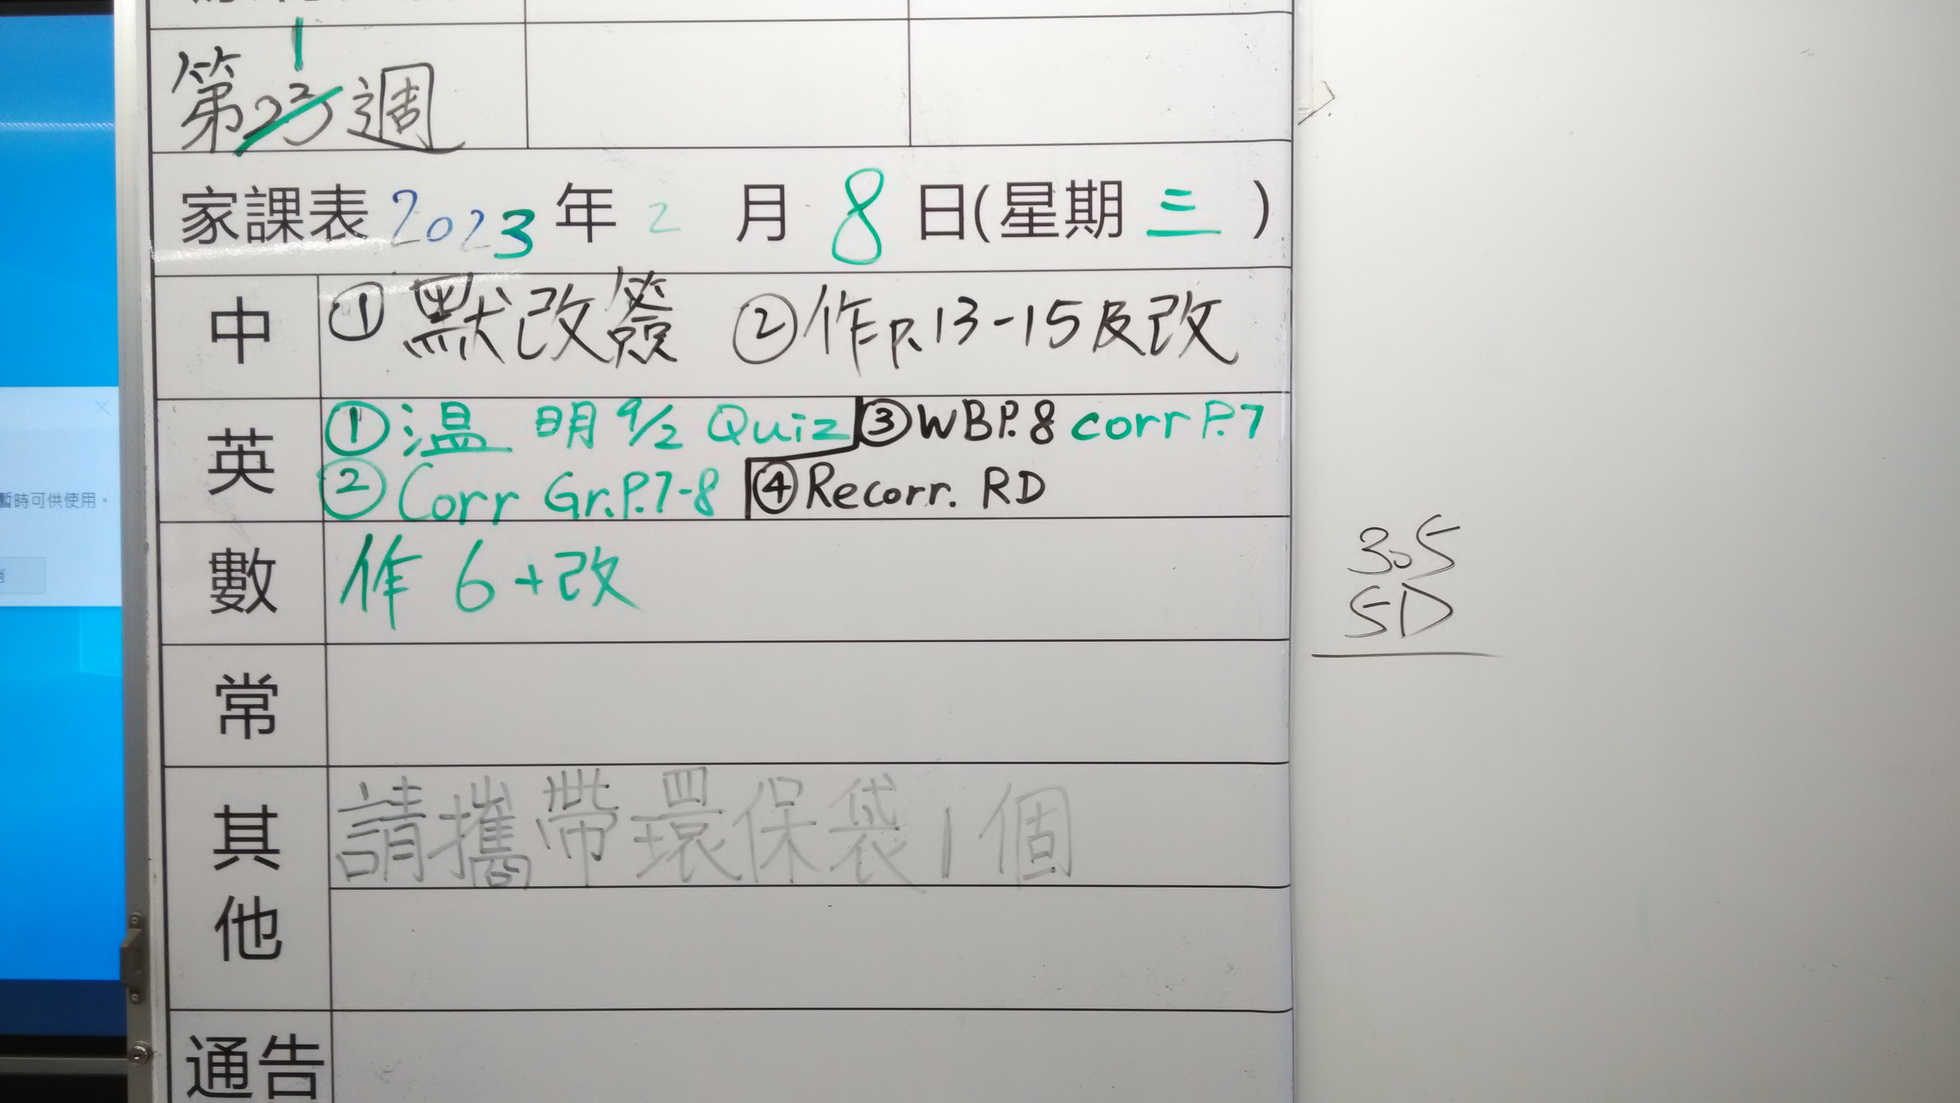 1
第週
家課表 2023 年 2 月 8 日(星期 三 )
中 ①默改簽 ②作P.13-15及改
英 ①溫 明9/2 Quiz ③WBP.8 corr P.7
②Corr Gr.P.7-8 ④Recorr. RD
數 作 6+改
常
其他 請攜帶環保袋1個
通告
暫時可供使用。
3.5
5D